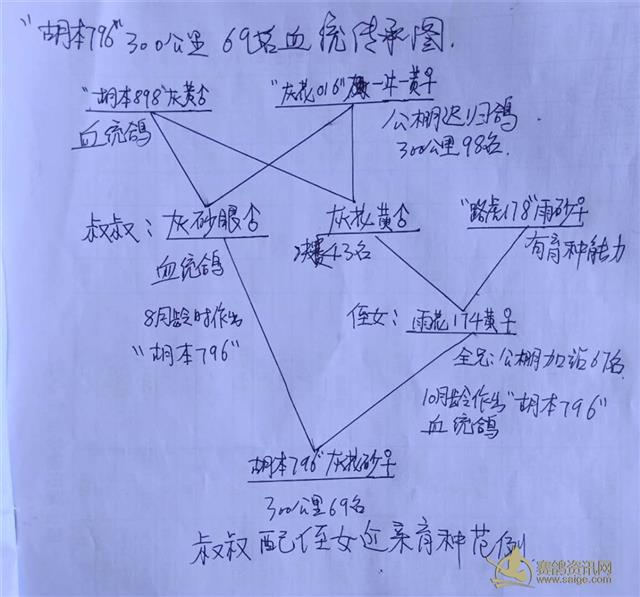 "胡本796"300公里 69名血统传承图.
"胡本898"灰黄♂
血统鸽
"灰花016" 一黄♀
公棚迟归鸽
300公里98名.
叔叔:灰砂眼♂
血统鸽
8月龄时作出
"胡本796"
灰花黄♂
决赛43名
"路虎178"雨砂♀
有育种能力
侄女:雨花174黄♀
全兄:公棚加站67名.
10月龄作出"胡本796"
血统鸽
胡本796"灰花砂♀
300公里69名
叔叔配侄女近亲育种范例
赛鸽资讯网
www.saige.com